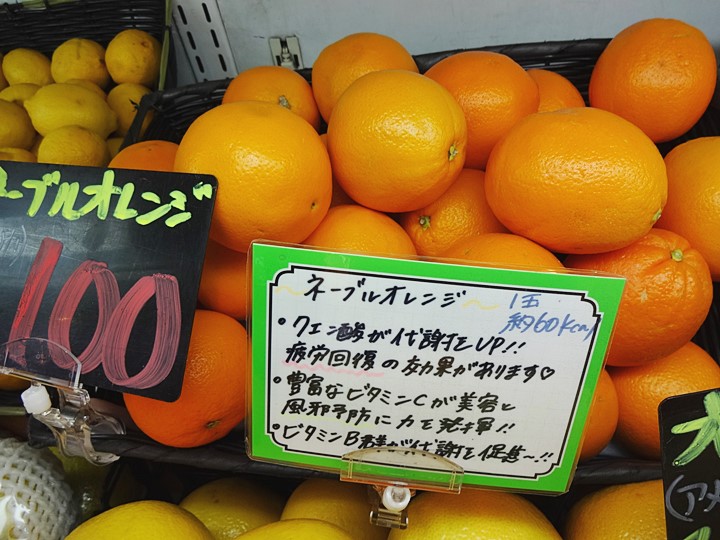 ネーブルオレンジ
100
～ネーブルオレンジ～
1玉
約60Kcal
・クエン酸が代謝をUP!!
疲労回復の効果があります♡
・豊富なビタミンCが美容と
風邪予防に力を発揮!!
・ビタミンB群が代謝を促進～!!
オ
(アメ